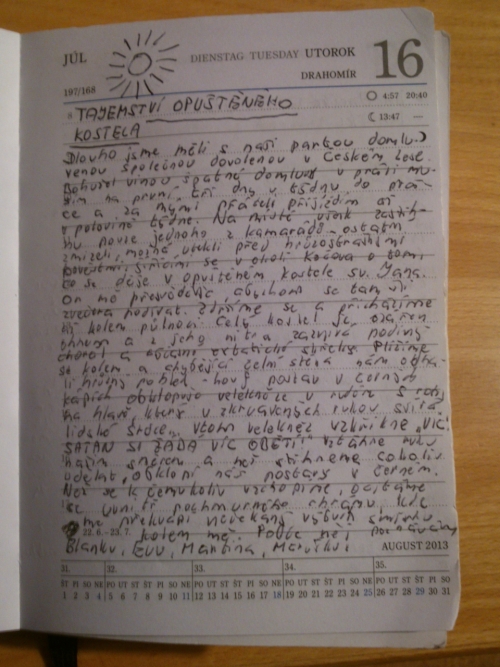 JÚL
DIENSTAG TUESDAY UTOROK 16
DRAHOMÍR
197/168
4:57 20:40
8 TAJEMSTVÍ OPUŠTĚNÉHO
13:47 —
KOSTELA
Dlouho jsme měli s naší partou domlu-
venou společnou dovolenou v Českém
Bohužel vinou špatné domluvy v práci mu-
sím na první tři dny v týdnu do prá-
ce a za mými přáteli přijíždím až
v polovině týdne. Na místě však zastih-
nu pouze jednoho z kamarádů - ostatní
zmizeli, možná utekli před hrůzostrašnými
pověstmi šířícími se v okolí o tom,
co se děje v opuštěném kostele sv. Jana.
On mě přesvědčil abychom se tam šli
zvečera podívat. se a přicházíme
až kolem půlnoci. Celý kostel je ozářen
ohněm a z jeho nitra zaznívá podivný
chorál a občasné extatické výkřiky. Plížíme
se kolem a chybějící čelní stěna nám odha-
lí hrůzný pohled - houf postav v černých
kápích obklopuje velekněze v rudém s rohy
na hlavě, který v zkrvavených rukou svírá
lidské srdce. Vtom velekněz vykřikne „VÍC!
SATAN SI ŽÁDÁ VÍC OBĚTÍ!" vztáhne ruku
naším směrem a než stihneme cokoliv
udělat, obklopí nás postavy v černém.
Než se k čemukoliv vzchopíme, ocitáme
se uvnitř pochmurného chrámu, kde
22. 6. – 23. 7. mě překvapí nečekaný výbuch smíchu
kolem mě. Pod kápěmi poznávám
Blanku, Evu, Martina,
AUGUST 2013
31. 32. 33. 34. 35.
ŠT PI SO NE PO UT ST ŠT PI SO NE PO UT ST ŠT PI SO NE PO UT ST ŠT PI SO NE PO UT ST ŠT PI SO
1 2 3 4 5 6 7 8 9 10 11 12 13 14 15 16 17 18 19 20 21 22 23 24 25 26 27 28 29 30 31